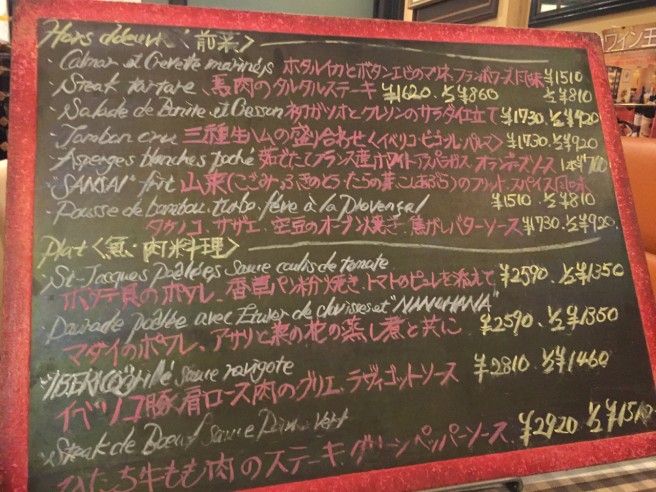 Hors d'œuvre〈前菜〉
・Calmar et Crevette marinés ホタルイカとボタンエビのマリネ、フランボワーズ風味 ¥1510
・Steak tartare、馬肉のタルタルステーキ ¥1620. ½¥860 ½¥810
・Salade de Bonite et Cresson 初ガツオとクレソンのサラダ仕立て ¥1730. ½¥920
・Jambon cru 三種生ハムの盛り合わせ〈イベリコ・ビゴール・パルマ〉 ¥1730. ½¥920
・Asperges blanches poché 茹でたてフランス産ホワイトアスパラガス オランデーズソース 1本
・"SANSAI" frit 山菜(こごみ、ふきのとう、たらの芽、こしあぶら)のフリット、スパイス風味
¥1510. ½¥810
・Pousse de bambou, turbo, fève à la Provençal
タケノコ、サザエ、空豆のオーブン焼き、焦がしバターソース ¥1730. ½¥920.
Plat〈魚・肉料理〉
・St-Jacques poêlées sauce coulis de tomate
ホタテ貝のポワレ、香草パン粉焼き、トマトのピュレを添えて ¥2590. ½¥1350
・Daurade poêlée avec Étuver de clovisses et "NANOHANA"
マダイのポワレ、アサリと菜の花の蒸し煮と共に ¥2590. ½¥1350
grillé sauce ravigote
イベリコ豚肩ロース肉のグリエ、ラヴィゴットソース ¥2810. ½¥1460
・Steak de Bœuf sauce Poivre vert
ひたち牛もも肉のステーキ、グリーンペッパーソース. ¥2920 ½¥1510
ワイン王